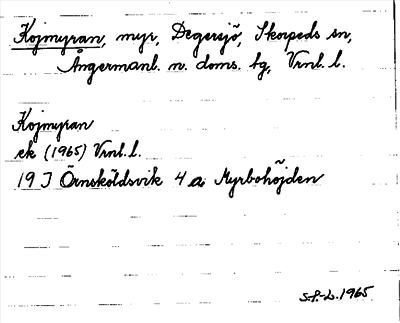 Kojmyran, myr, Degersjö, Skorpeds sn,
Ångermanl. n. doms. tg, Vrnl. l.
Kojmyran
ek (1965) Vrnl. l.
19 J Örnsköldsvik 4 a Myrbohöjden
S.P.-L. 1965